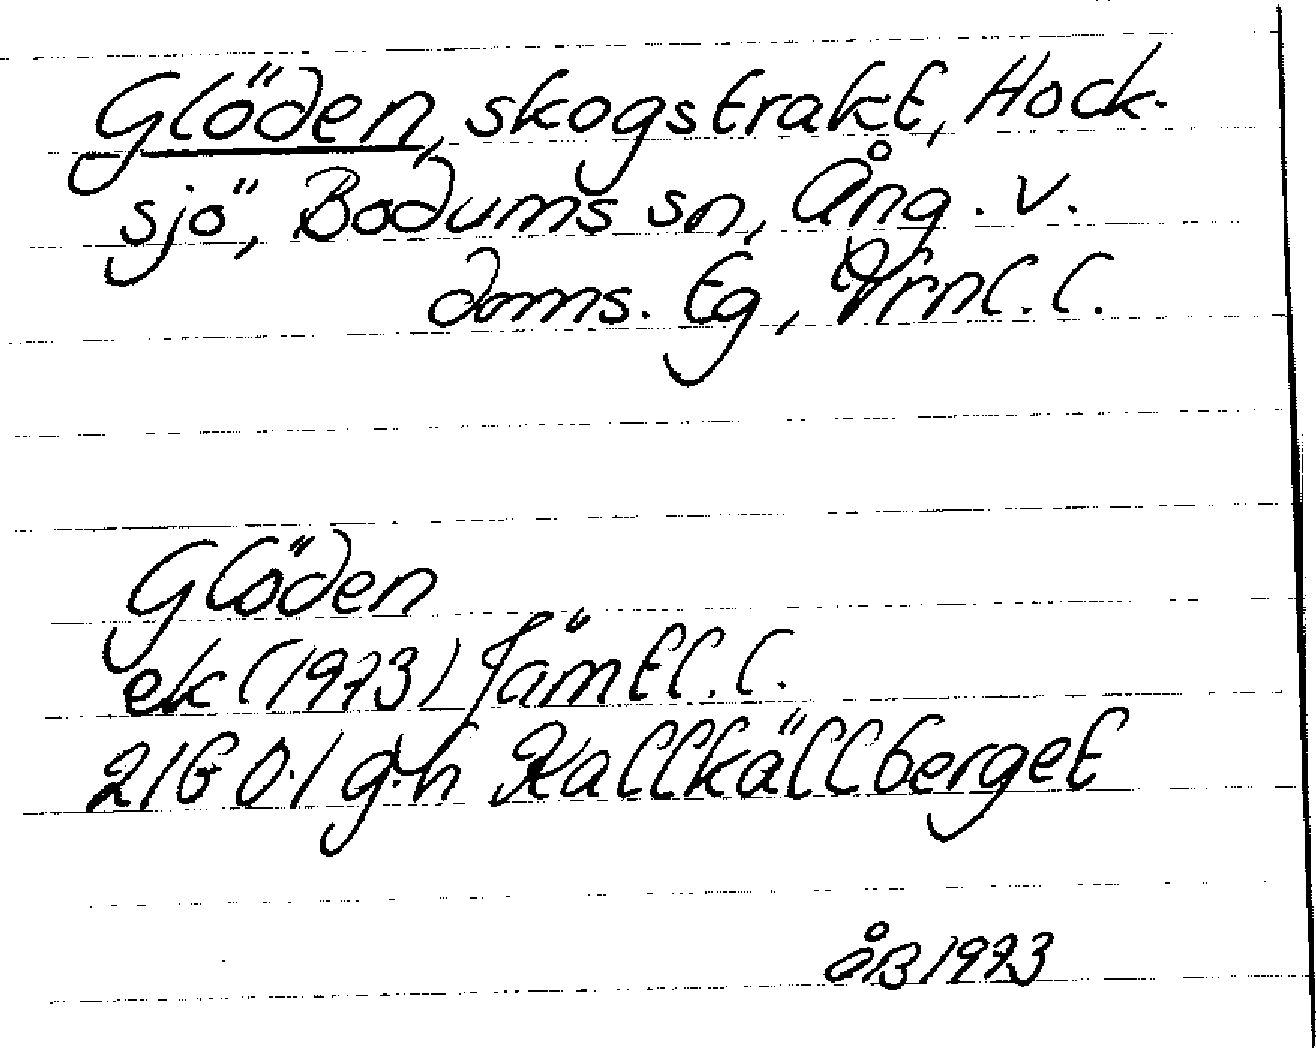 Glöden, skogstrakt, Hock-
sjö, Bodums sn, Ång. v.
doms. tg, Vrnl. l.
Glöden
ek (1973) Jämtl. l.
21G 0.1 g.h Kallkällberget
ÅB 1993